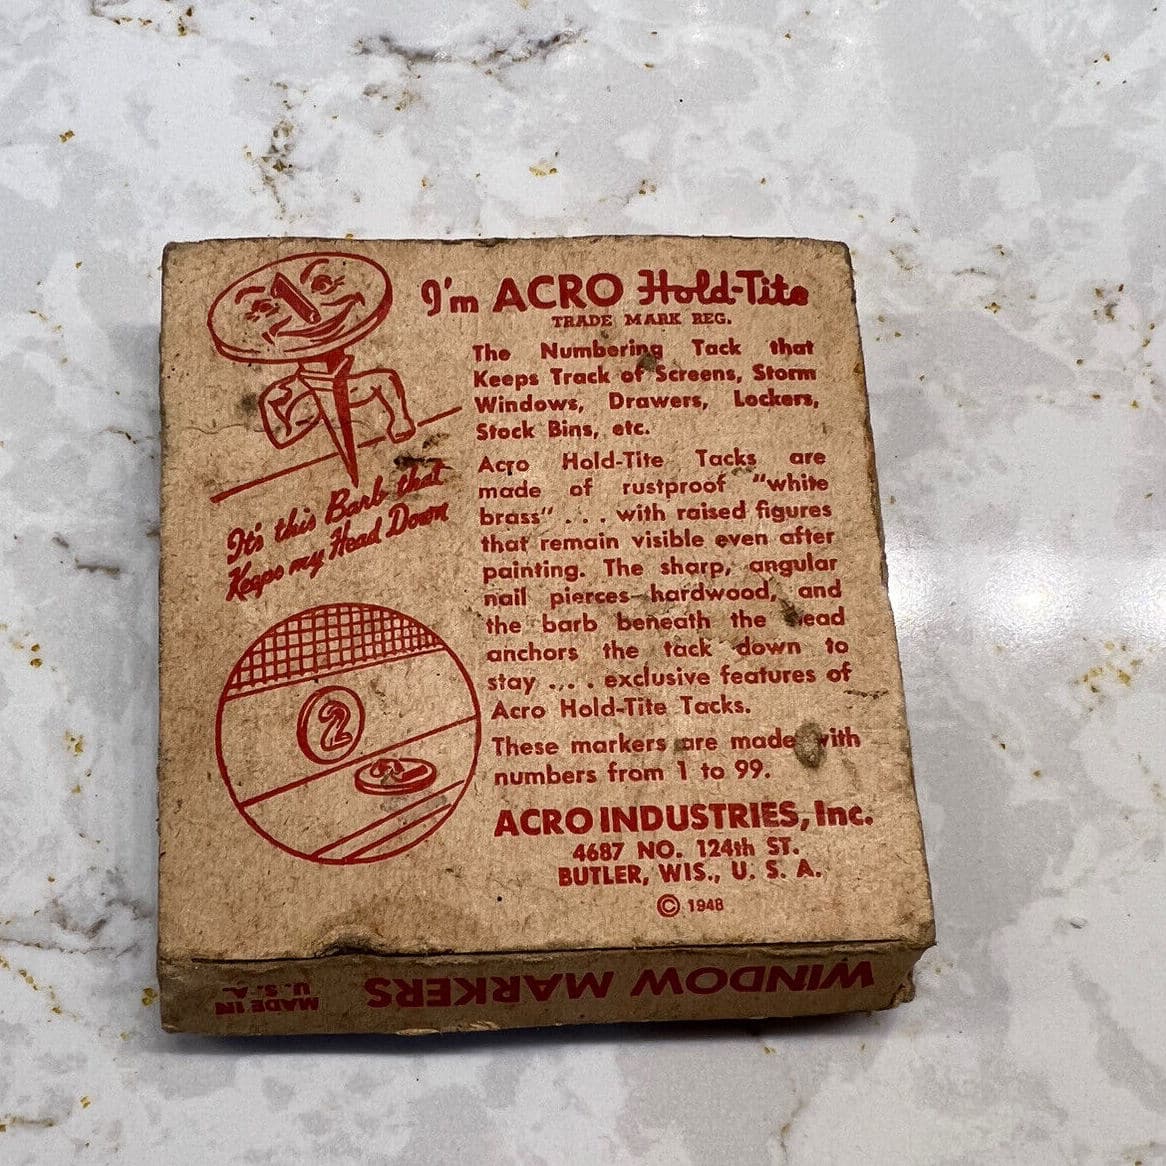 I'm ACRO Hold-Tite
TRADE MARK REG.
The Numbering Tack that
Keeps Track of Screens, Storm
Windows, Drawers, Lockers,
Stock Bins, etc.
It's this Barb that
Keeps my Head Down
Acro Hold-Tite Tacks are
made of rustproof "white
brass" . . . with raised figures
that remain visible even after
painting. The sharp, angular
nail pierces hardwood, and
the barb beneath the head
anchors the tack down to
stay . . . . exclusive features of
Acro Hold-Tite Tacks.
2
2
These markers are made with
numbers from 1 to 99.
ACRO INDUSTRIES, Inc.
4687 NO. 124th ST.
BUTLER, WIS., U. S. A.
© 1948
WINDOW MARKERS
MADE IN
U. S. A.